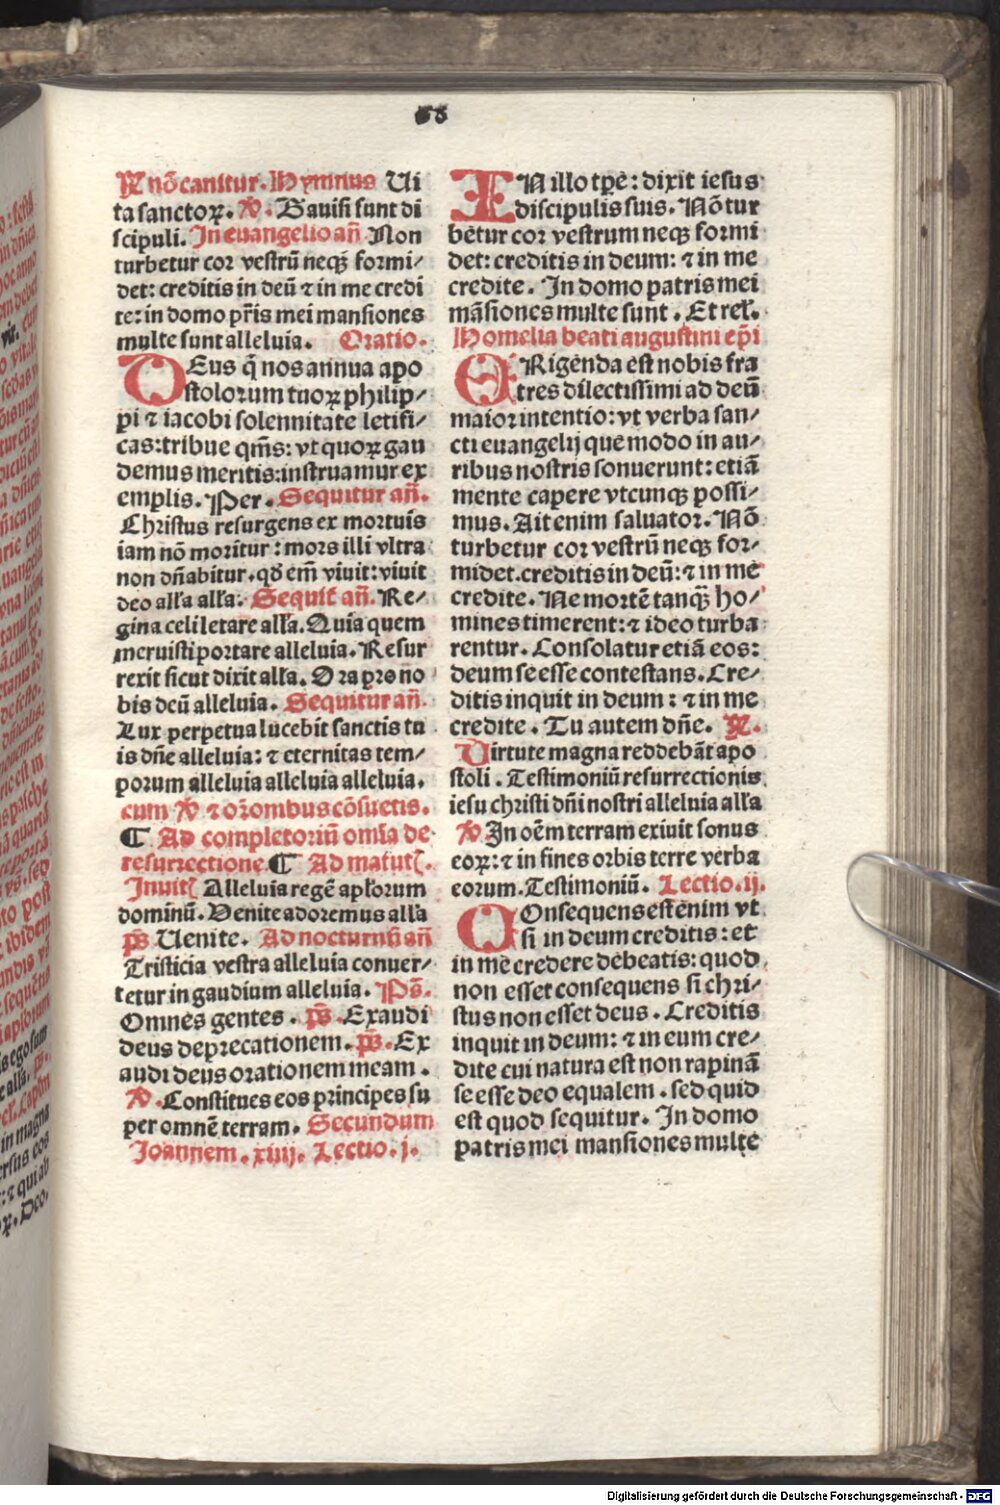 68
℟ nō canitur. Hymnus Ui
ta sanctoꝝ. ℣. Gauisi sunt di
scipuli. In euangelio añ Non
turbetur cor vestrū neqꝫ formi/
det: creditis in deū ⁊ in me credi
te: in domo p̄ris mei mansiones
multe sunt alleluia. Oratio.
DEus q̄ nos annua apo
stolorum tuoꝝ philip/
pi ⁊ iacobi solennitate letifi/
cas: tribue qm̄s: vt quoꝝ gau
demus meritis: instruamur ex
emplis. Per. Sequitur añ.
Christus resurgens ex mortuis
iam nō moritur: mors illi vltra
non dñabitur. qd̛ em̄ viuit: viuit
deo alľa alľa. Sequit̛ añ. Re/
gina celi letare alľa. Quia quem
meruisti portare alleluia. Resur
rexit sicut dixit alľa. Ora pro no
bis deū alleluia. Sequitur añ
Lux perpetua lucebit sanctis tu
is dñe alleluia: ⁊ eternitas tem/
porum alleluia alleluia alleluia.
cum ℣ ⁊ or̄onibus cōsuetis.
¶ Ad completoriū om̄ia de
resurrectione. ¶ Ad matut̛.
Inuit̛ Alleluia regē apľorum
dominū. Uenite adoremus alľa
p̄s Uenite. Ad nocturnū añ
Tristicia vestra alleluia conuer/
tetur in gaudium alleluia. Ps̄.
Omnes gentes. p̄s. Exaudi
deus deprecationem. p̄s. Ex
audi deus orationem meam.
℣. Constitues eos principes su
per omnē terram. Secundum
Joannem. xiiij. Lectio. j.
IN illo tp̄e: dixit iesus
discipulis suis. Nō tur
betur cor vestrum neqꝫ formi
det: creditis in deum: ⁊ in me
credite. In domo patris mei
māsiones multe sunt. Et reľ.
Homelia beati augustini ep̄i
ERigenda est nobis fra
tres dilectissimi ad deū
maior intentio: vt verba san/
cti euangelij que modo in au/
ribus nostris sonuerunt: etiā
mente capere vtcunqꝫ possi/
mus. Ait enim saluator. Nō
turbetur cor vestrū neqꝫ for/
midet. creditis in deū: ⁊ in me
credite. Ne mortē tanqꝫ ho/
mines timerent: ⁊ ideo turba
rentur. Consolatur etiā eos:
deum se esse contestans. Cre/
ditis inquit in deum: ⁊ in me
credite. Tu autem dñe. ℟.
Uirtute magna reddebāt apo
stoli. Testimoniū resurrectionis
iesu christi dñi nostri alleluia alľa
℣ In oēm terram exiuit sonus
eoꝝ: ⁊ in fines orbis terre verba
eorum. Testimoniū. Lectio. ij.
COnsequens est enim vt
si in deum creditis: et
in me credere debeatis: quod
non esset consequens si chri/
stus non esset deus. Creditis
inquit in deum: ⁊ in eum cre/
dite cui natura est non rapinā
se esse deo equalem. sed quid
est quod sequitur. In domo
patris mei mansiones multe
Digitalisierung gefördert durch die Deutsche Forschungsgemeinschaft - DFG